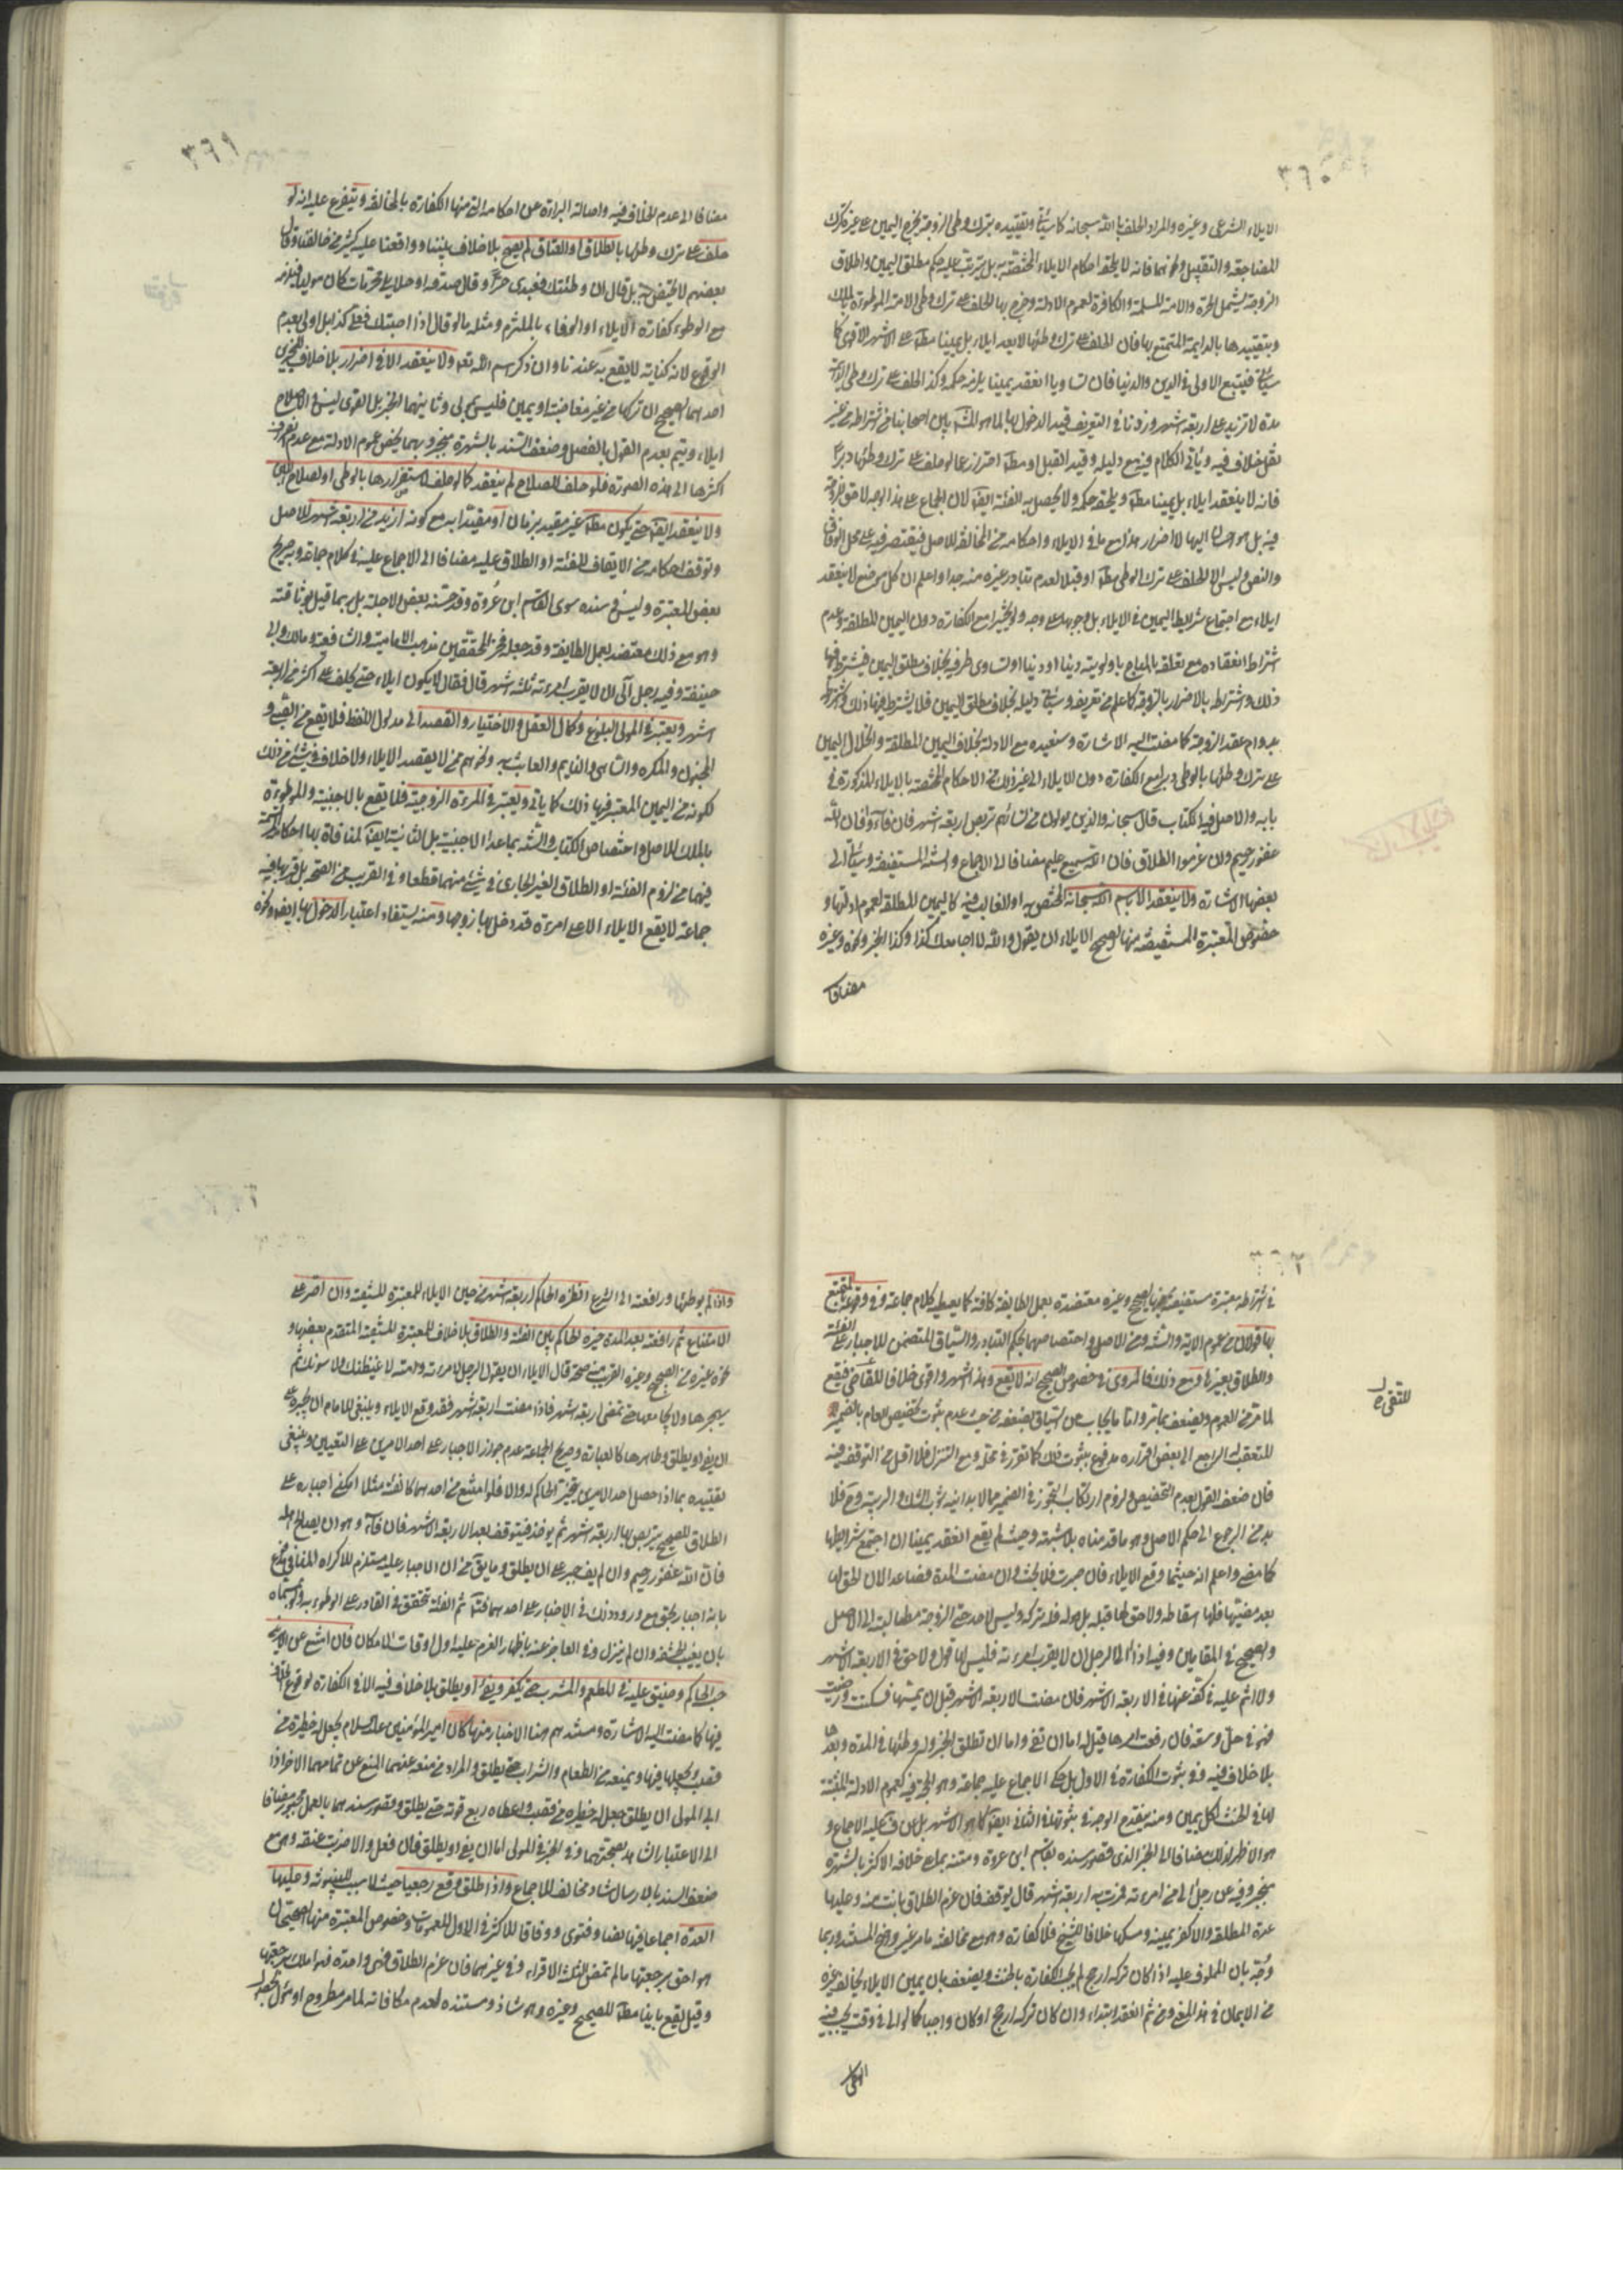 ٣٦٠
الايلاء الشرعى وغيره والمراد الحلف بالله سبحانه كما سيأتى وتقييده بترك وطى الزوجة يخرج اليمين على غيره كترك
المضاجعة والتقبيل ونحوهما فانه لا يلحقه احكام الايلاء المختصة به بل يترتب عليه حكم مطلق اليمين واطلاق
الزوجة يشمل الحرة والامة المسلمة والكافرة لعموم الادلة وخرج بها الحلف على ترك وطى الامة الموطوءة بالملك
وبتقييدها بالدايمة المتمتع بها فان الحلف على ترك وطئها لا يعد ايلاء بل يمينا مطلقا على الاشهر الاقوى كما
سيأتى فيتبع الاولى فى الدين والدنيا فان تساويا انعقد يمينا يلزمه حكمه وكذا الحلف على ترك وطى الدائمة
مدة لا تزيد على اربعة اشهر وزدنا فى التعريف قيد الدخول بها لما هو المشهور بين اصحابنا من اشتراطه من غير
نقل خلاف فيه ويأتى الكلام فيه مع دليله وقيد القبل او مطلقا احتراز عما لو حلف على ترك وطئها دبرا
فانه لا ينعقد ايلاء بل يمينا مطلقا ويلحقه حكمه ولا يحصل به الفئة ايضا لان الجماع على هذا الوجه لا حق للزوجة
فيه بل هو احسان اليها لا اضرار هذا مع ما فى الايلاء واحكامه من المخالفة للاصل فيقتصر فيه على محل الوفاق
والنص وليس الا للحلف على ترك الوطى مطلقا او قبلا لعدم تبادر غيره منه جدا واعلم ان كل موضع لا ينعقد
ايلاء مع اجتماع شرايط اليمين فى الايلاء بل وجوبها على وجه ولو تخييرا مع الكفارة دون اليمين المطلقة وعدم
اشتراط انعقاده مع تعلقه بالمباح باولويته دينا او دنيا او تساوى طرفيه بخلاف مطلق اليمين فيشترط فيها
ذلك واشتراطه بالاضرار بالزوجة كما علم من تعريفه وسيأتى دليله بخلاف مطلق اليمين فلا يشترط فيها ذلك واشتراطه
بدوام عقد الزوجة كما مضت اليه الاشارة وسنعيده مع الادلة بخلاف اليمين المطلقة وانحلال اليمين
على ترك وطئها بالوطى دبرا مع الكفارة دون الايلاء الى غير ذلك من الاحكام المختصة بالايلاء المذكورة فى
بابه والاصل فيه الكتاب قال سبحانه والذين يولون من نسائهم تربص اربعة اشهر فان فآءوا فان الله
غفور رحيم وان عزموا الطلاق فان الله سميع عليم مضافا الى الاجماع والسنة المستفيضة وسيأتى الى
بعضها الاشارة ولا ينعقد الا باسم الله سبحانه المختص به او الغالب فيه كاليمين المطلقة لعموم ادلتها و
خصوص المعتبرة المستفيضة منها الصحيح الايلاء ان يقول والله لا اجامعك كذا وكذا الخبر ونحوه وغيره
مضافا
٣٦١
مضافا الى عدم الخلاف فيه واصالة البراءة عن احكامه التى منها الكفارة بالمخالفة ويتفرع عليه انه لو
حلف على ترك وطئها بالطلاق او العتاق لم يصح بلا خلاف بيننا ووافقنا عليه كثير من مخالفينا وقال
بعضهم لا يختص به بل قال ان وطئتك فعبدى حر او قال صدقة او صلاة محرمات كان موليا فيلزمه
مع الوطوء كفارة الايلاء او الوفاء بالملتزم ومثله ما لو قال اذا اصبتك فعلى كذا بل اولى بعدم
الوقوع لانه كناية لا يقع به عندنا وان ذكر اسم الله تعالى ولا ينعقد الا فى اضرار بلا خلاف للخبرين
احدهما الصحيح ان تركها من غير مغاضبة او يمين فليس بمولى وثانيهما الخبر بل القوى ليس فى الاصلاح
ايلاء ويتم بعدم القول بالفصل وضعف السند بالشهرة منجبر وبهما يخص عموم الادلة مع عدم انصراف
اكثرها الى هذه الصورة فلو حلف لصلاح لم ينعقد كما لو حلف لاستضرارها بالوطى او لصلاح اللبن
ولا ينعقد ايضا حتى يكون مطلقا غير مقيد بزمان او مقيدا به مع كونه ازيد من اربعة اشهر للاصل
وتوقف احكامه من الايقاف للفئة او الطلاق عليه مضافا الى الاجماع عليه فى كلام جماعة وبه صريح
بعض المعتبرة وليس فى سنده سوى القاسم ابن عروة وقد حسنه بعض الاجلة بل ربما قيل بوثاقته
وهو مع ذلك معتضد بعمل الطايفة وقد جعله فخر المحققين مذهب الامامية والشافعى ومالك وابى
حنيفة وفيه رجل آلى ان لا يقرب امرءته ثلثة اشهر قال فقال لا يكون ايلاء حتى يحلف على اكثر من اربعة
اشهر ويعتبر فى المولى البلوغ وكمال العقل والاختيار والقصد الى مدلول اللفظ فلا يقع من الصبى و
المجنون والمكره والساهى والنايم والعابث به ونحوهم ممن لا يقصد الايلاء ولا خلاف فى شئ من ذلك
لكونه من اليمين المعتبر فيها ذلك كما يأتى ويعتبر فى المرءة الزوجية فلا يقع بالاجنبية والموطوءة
بالملك للاصل واختصاص الكتاب والسنة بما عدا الاجنبية بل الثانية ايضا لمنافاة بها احكام المتعة
فيهما من لزوم الفئة او الطلاق الغير الجارى فى شئ منهما قطعا وفى القريب من الصحة بل قربها فيه
جماعة لا يقع الايلاء الا على امرءة قد دخل بها زوجها ومنه يستفاد اعتبار الدخول بها ايضا ونحوه
٣٦٢
فى اشتراطه معتبرة مستفيضة فيها الصحيح وغيره معتضدة بعمل الطايفة كافة كما يعطيه كلام جماعة وفى وقوعه بالمتمتع
بها قولان من عموم الاية والسنة ومن الاصل واختصاصهما بحكم التبادر والسياق المتضمن للاجبار على الفئة
والطلاق بغيرها ومع ذلك فالمروى فى خصوص الصحيح انه لا يقع وهذا اشهر واقوى خلافا للقاضى فيقع
لما مر من العموم ويضعف بما مر واما ما يجاب عن السياق بضعفه من حيث عدم ثبوت تخصيص العام بالضمير
المتعقب له الراجع الى بعض افراده مدفوع بثبوت ذلك كما تقرر فى محله ومع التنزل فلا اقل من التوقف فيه
فان ضعف القول بعدم التخصيص ولزوم ارتكاب التجوز فى الضمير مما لا يدانيه ثوب الشك والريبة وح فلا
بد من الرجوع الى حكم الاصل وهو ما قدمناه بلا شبهة وحيث لم يقع انعقد يمينا ان اجتمع شرايطها
كما مضى واعلم انه حيثما وقع الايلاء فان صبرت فلا بحث وان مضت المدة فصاعدا لان الحق لها
بعد مضيها فلها اسقاطه ولا حق لها قبله بل هو له فله تركه وليس لاحد حتى الزوجة مطالبته الى الاصل
والصحيح فى المقامين وفيه اذا آلى الرجل ان لا يقرب امرءته فليس لها قول ولا حق فى الاربعة الاشهر
ولا اثم عليه فى كفه عنها فى الاربعة الاشهر فان مضت الاربعة الاشهر قبل ان يمسها فسكتت ورضيت
فهو فى حل وسعة فان رفعت امرها قيل له اما ان تفئ واما ان تطلق الخبر وله وطئها فى المدة وبعدها
بلا خلاف فيه وفى ثبوت الكفارة فى الاول بل حكى الاجماع عليه جماعة وهو الحجة فيه كعموم الادلة المثبتة
لها فى الحنث لكل يمين ومنه ينقدم الوجه فى ثبوتها فى الثانى ايضا كما هو الاشهر بل عن ف عليه الاجماع و
هو الاظهر لذلك مضافا الى الخبر الذى قصور سنده بقاسم ابن عروة ومتنه بمصير خلافه الاكثر بالشهرة
منجبر وفيه عن رجل آلى من امرءته فمرت به اربعة اشهر قال يوقف فان عزم الطلاق بانت منه وعليها
عدة المطلقة والا كفر يمينه ومسكها خلافا للشيخ فلا كفارة وهو مع مخالفته ما مر غير واضح المستند وربما
وجه بان المحلوف عليه اذا كان تركه ارجح لم يجب الكفارة بالحنث ويضعف بان يمين الايلاء يخالف غيره
من الايمان فى هذا المعنى ومن ثم انعقد ابتداء وان كان تركه ارجح او كان واجبا كما لو آلى فى وقت يجب فيه
الوطى
للتقى ره
واذا لم يوطئها ورافعته الى الشرع انظره الحاكم اربعة اشهر من حين الايلاء للمعتبرة المستفيضة وان اصر على
الامتناع ثم رافعته بعد المدة خيره الحاكم بين الفئة والطلاق بلا خلاف للمعتبرة المستفيضة المتقدم بعضها و
نحوه غيره من الصحيح وغيره القريب منه صحة قال الايلاء ان يقول الرجل لامرءته والله لاغيظنك ولاسوئنك ثم
يهجرها ولا يجامعها حتى تمضى اربعة اشهر فاذا مضت اربعة اشهر فقد وقع الايلاء وينبغى للامام ان يجبره على
ان يفئ او يطلق وظاهرها كالعبارة وصريح الجماعة عدم جواز الاجبار على احد الامرين على التعيين وينبغى
تقييده بما اذا حصل احد الامرين بتخيير الحاكم له والا فلو امتنع من احدهما كالفئة مثلا امكن اجباره على
الطلاق للصحيح يتربص بها اربعة اشهر ثم يؤخذ فيتوقف بعد الاربعة الاشهر فان فآء وهو ان يصالح اهله
فان الله غفور رحيم وان لم يف جبر على ان يطلق وما يق من ان الاجبار عليه مستلزم للاكراه المنافى
بانه اجبار بحق مع ورود ذلك فى الاخبار على احدهما ثم الفئة تتحقق فى القادر على الوطوء به ولو بمسماه
بان يغيب الحشفة وان لم ينزل وفى العاجز عنه باظهار العزم عليه اول اوقات الامكان فان امتنع عن الامرين
حبسه الحاكم وضيق عليه فى المطعم والمشرب حتى يكفر ويفئ او يطلق بلا خلاف فيه الا فى الكفارة لوقوع الخلاف
فيها كما مضت اليه الاشارة ومستندهم هنا الاخبار منها كان امير المؤمنين عليه السلام يجعل له حظيرة من
قصب ويجعله فيها ويمنعه من الطعام والشراب حتى يطلق والمراد من منعه عنهما المنع عن تمامهما الاخر اذا
ابى المولى ان يطلق جعل له حظيرة من قصب واعطاه ربع قوته حتى يطلق وقصور سندهما بالعمل مجبور مضافا
الى الاعتبار الشاهد بصحتهما وفى الخبر فى المولى اما ان يفئ او يطلق فان فعل والا ضربت عنقه وهو مع
ضعف السند بالارسال شاذ مخالف للاجماع واذا طلق وقع رجعيا حيث لا سبب للبينونة وعليها
العدة اجماعا فيها نصا وفتوى ووفاقا للاكثر فى الاول للعمومات وخصوص المعتبرة منها الصحيحان
هو احق برجعتها ما لم تمض الثلثة الاقراء وفى غيرهما فان عزم الطلاق فهى واحدة فهو املك برجعتها
وقيل يقع باينا مطلقا للصحيح وغيره وهو شاذ ومستنده لعدم مكافاته لما مر مطروح او مؤول